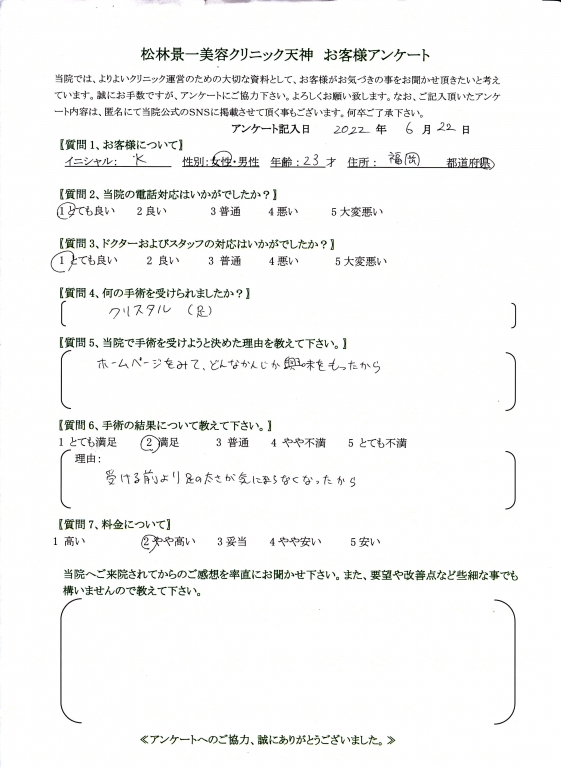 松林景一美容クリニック天神 お客様アンケート
当院では、よりよいクリニック運営のための大切な資料として、お客様がお気づきの事をお聞かせ頂きたいと考え
ています。誠にお手数ですが、アンケートにご協力下さい。よろしくお願い致します。なお、ご記入頂いたアンケ
ート内容は、匿名にて当院公式のSNSに掲載させて頂く事もございます。何卒ご了承下さい。
アンケート記入日 2022 年 6 月 22 日
〖質問1、お客様について〗
イニシャル: K 性別:女性・男性 年齢:23才 住所: 福岡 都道府県
〖質問2、当院の電話対応はいかがでしたか?〗
1とても良い 2良い 3普通 4悪い 5大変悪い
〖質問3、ドクターおよびスタッフの対応はいかがでしたか?〗
1とても良い 2 良い 3 普通 4悪い 5大変悪い
〖質問4、何の手術を受けられましたか?〗
クリスタル (足)
〖質問5、当院で手術を受けようと決めた理由を教えて下さい。〗
ホームページをみて、どんなかんじか興味をもったから
〖質問6、手術の結果について教えて下さい。〗
1 とても満足 2満足 3 普通 4 やや不満 5 とても不満
理由:
受ける前より足の太さが気にならなくなったから
〖質問7、料金について〗
1 高い 2やや高い 3妥当 4やや安い 5安い
当院へご来院されてからのご感想を率直にお聞かせ下さい。また、要望や改善点など些細な事でも
構いませんので教えて下さい。
≪アンケートへのご協力、誠にありがとうございました。≫